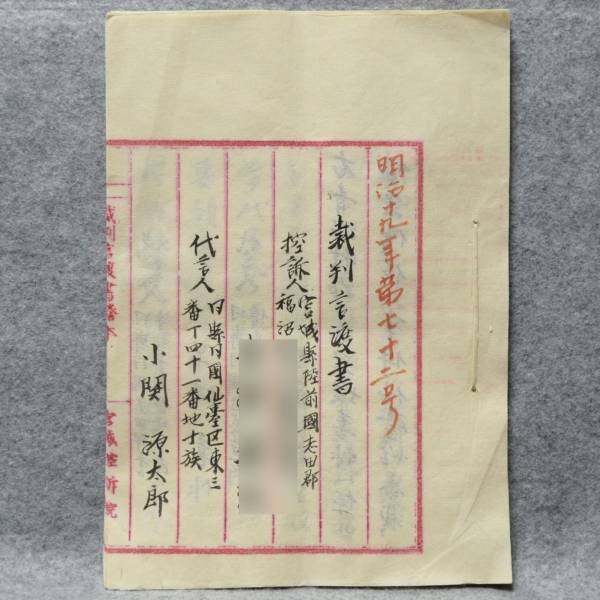 明治十九年第七十二号
裁判言渡書
控訴人
宮城縣陸前國志田郡
福沼
代言人
同縣同國仙䑓区東三
番丁四十一番地士族
小関源太郎
裁判言渡書謄本
宮城控訴院